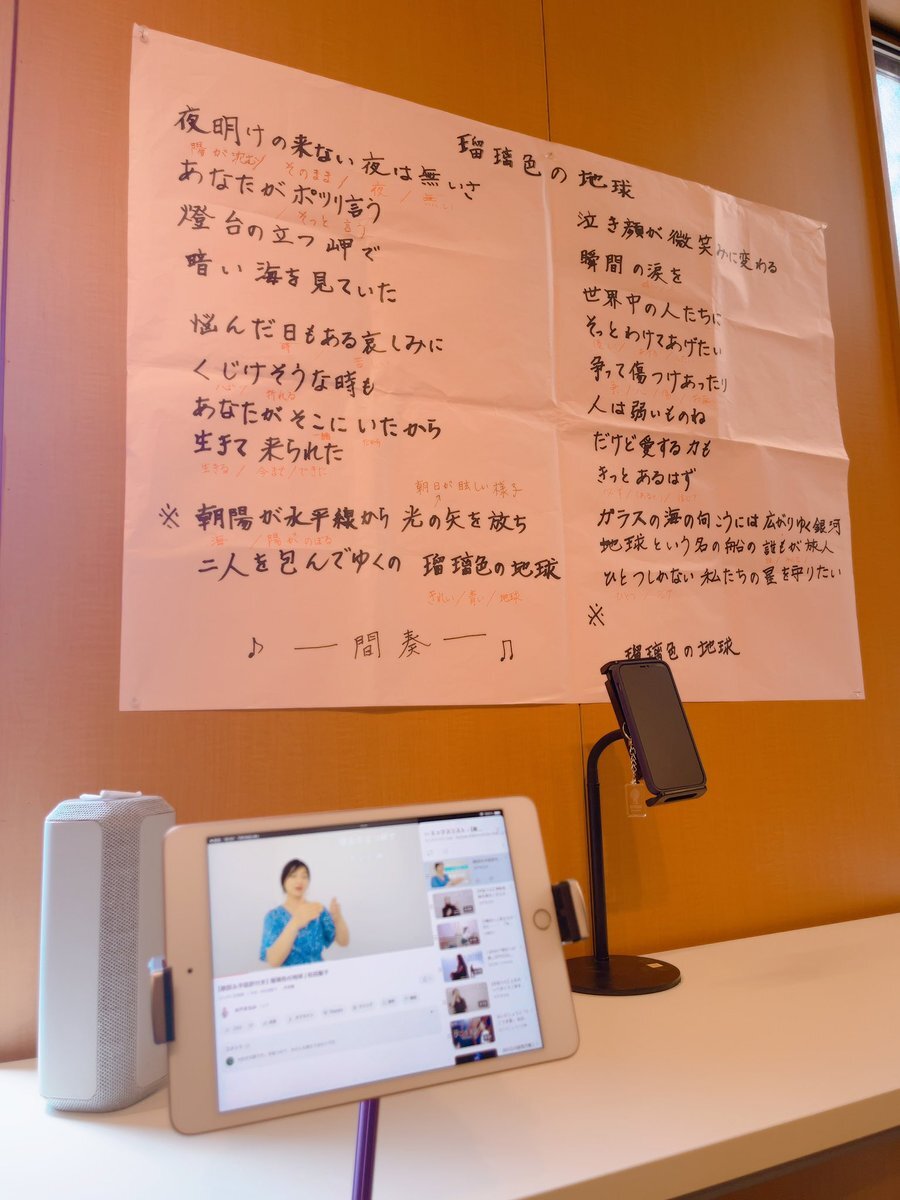 瑠璃色の地球
夜明けの来ない夜は無いさ
陽が沈む/ そのまま/ 夜 / 無い
あなたがポツリ言う
/ そっと 言う
燈台の立つ岬で
暗い海を見ていた
悩んだ日もある哀しみに
時
くじけそうな時も
折れる
あなたがそこにいたから
生きて来られた
生きる / 今まで/できた
朝日が眩しい様子
※ 朝陽が水平線から光の矢を放ち
海 / 陽がのぼる
二人を包んでゆくの 瑠璃色の地球
きれい/青い/地球
♪ ― 間奏 ― ♫
泣き顔が微笑みに変わる
瞬間の涙を
世界中の人たちに
そっとわけてあげたい
争って傷つけあったり
人は弱いものね
だけど愛する力も
きっとあるはず
ガラスの海の向こうには広がりゆく銀河
地球という名の船の誰もが旅人
ひとつしかない私たちの星を守りたい
※
瑠璃色の地球